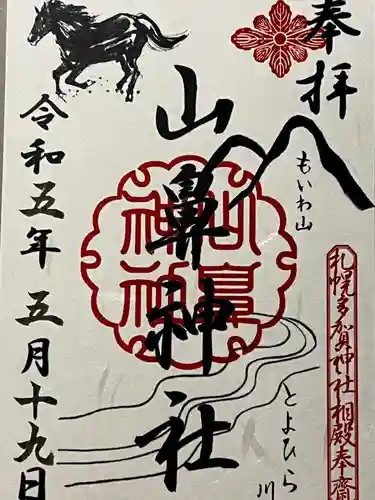 奉拝
もいわ山
札幌多賀神社相殿奉齋
山鼻神社
山鼻神社
とよひら川
令和五年五月十九日